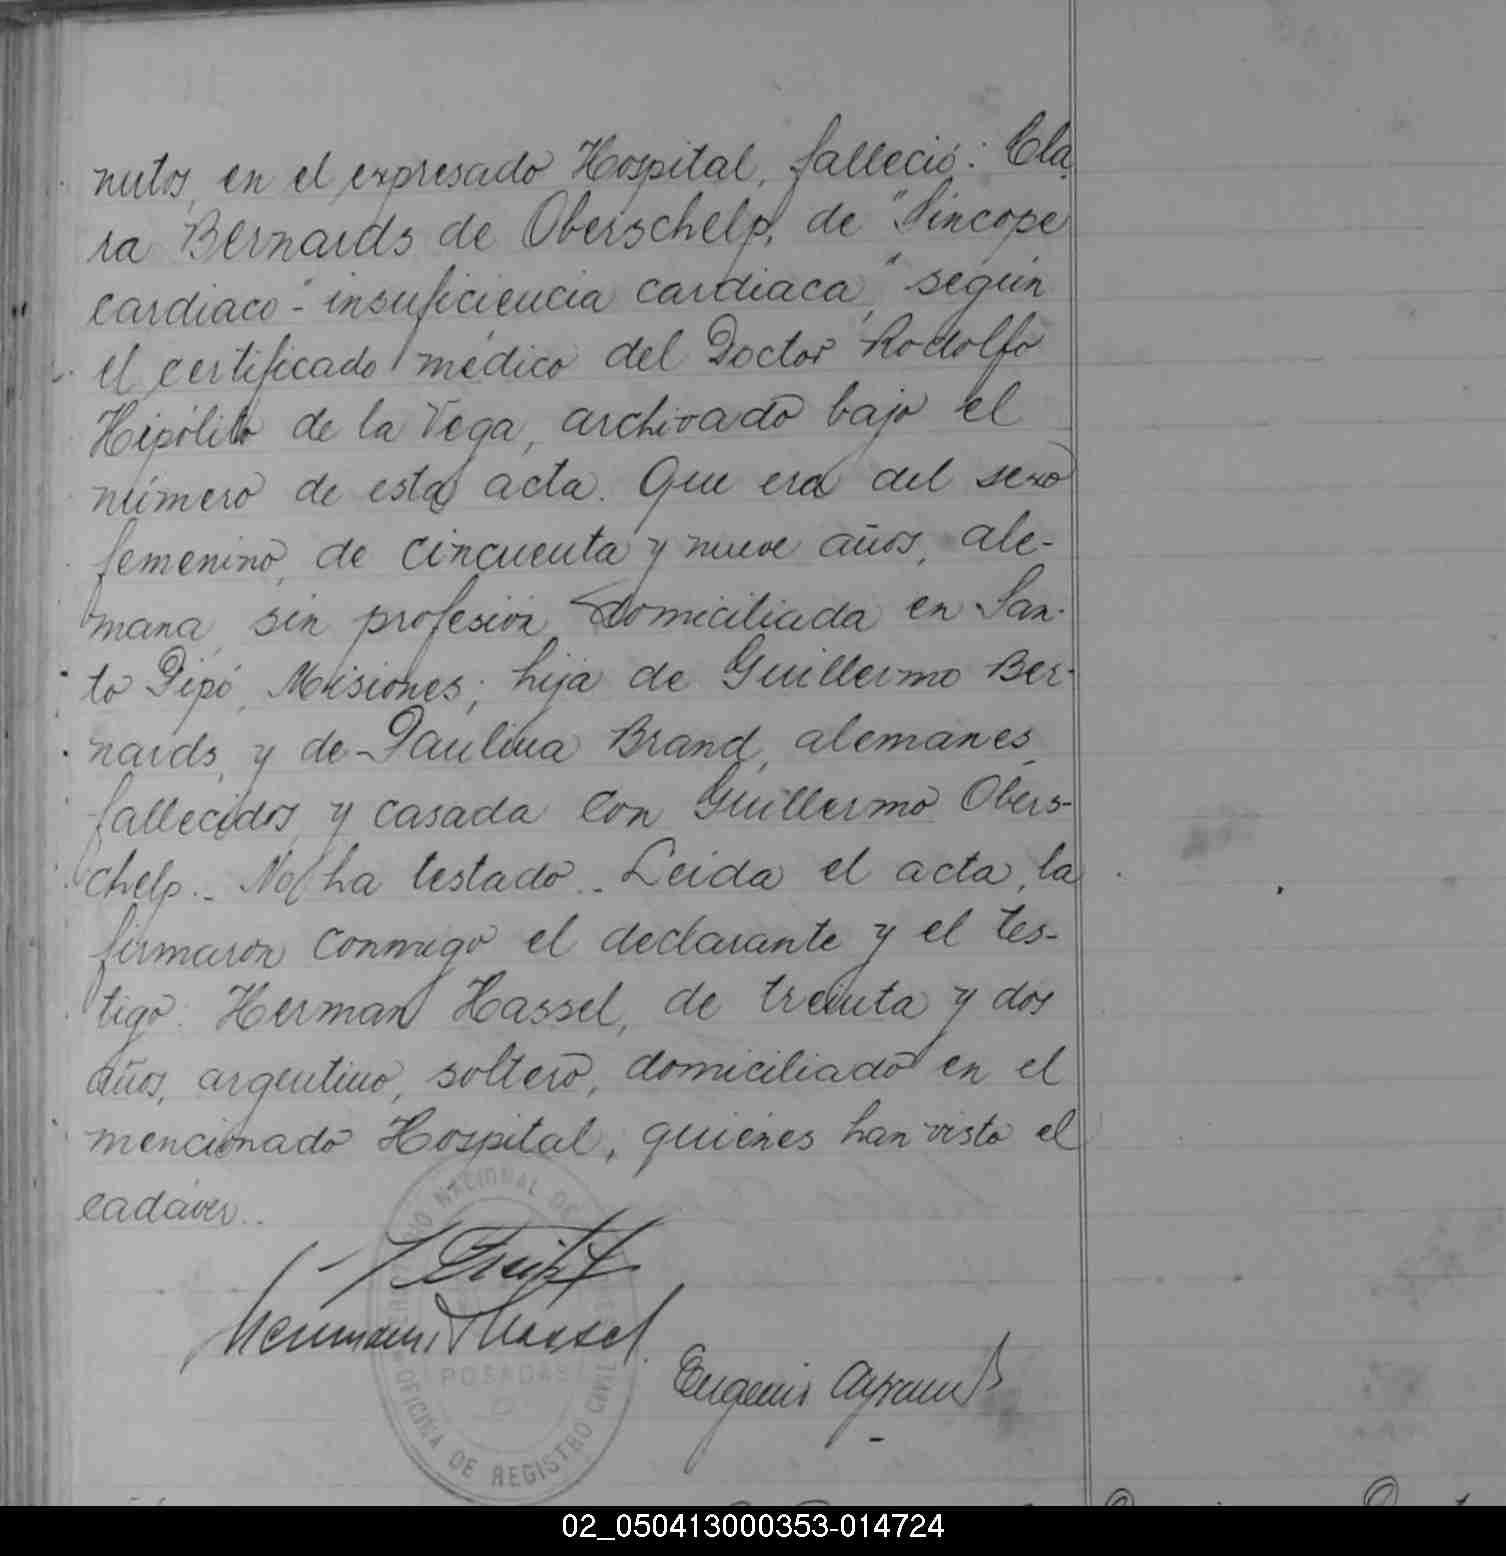 nutos, en el expresado Hospital, falleció: Cla
ra Bernards de Oberschelp, de "Síncope
cardiaco - insuficiencia cardiaca," según
el certificado médico del Doctor Rodolfo
Hipólito de la Vega, archivado bajo el
número de esta acta. Que era del sexo
femenino, de cincuenta y nueve años, ale-
mana, sin profesión, domiciliada en San-
to Pipó, Misiones; hija de Guillermo Ber-
nards, y de Paulina Brand, alemanes,
fallecidos, y casada con Guillermo Obers-
chelp.- No ha testado.- Leida el acta, la
firmaron conmigo el declarante y el tes-
tigo: Herman Hassel, de treinta y dos
años, argentino, soltero, domiciliado en el
mencionado Hospital, quienes han visto el
cadáver..
Hermann Hassel
Eugenio
NACIONAL DE
POSADAS
OFICINA DE REGISTRO CIVIL
02_050413000353-014724